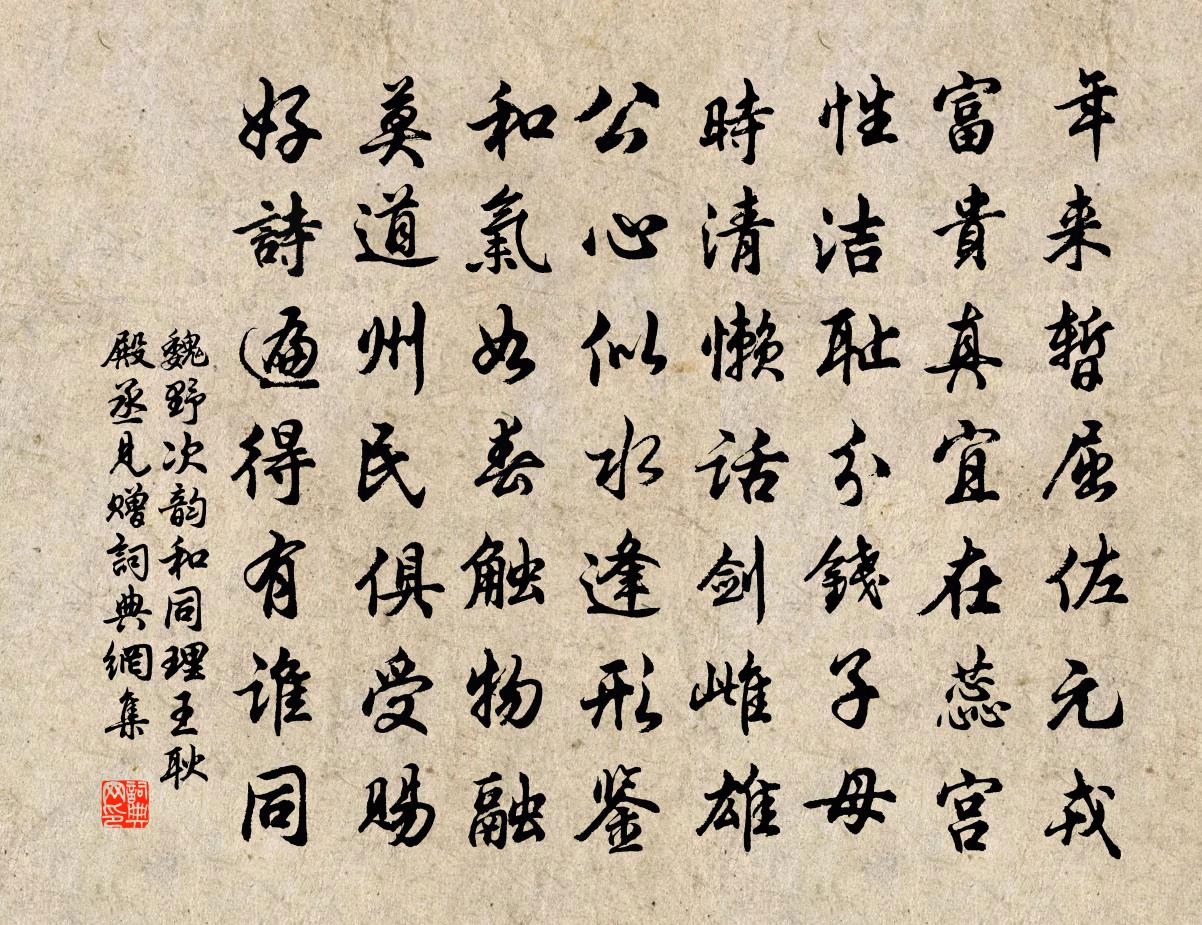 年来暫屈佐元戎
富貴真宜在蕊宫
性洁耻分錢子母
時清懒話剑雌雄
公心似水逢形鉴
和氣如春触物融
莫道州民俱受賜
好詩遍得有谁同
魏野次韵和同理王耿
殿丞見赠詞典網集
詞典网印